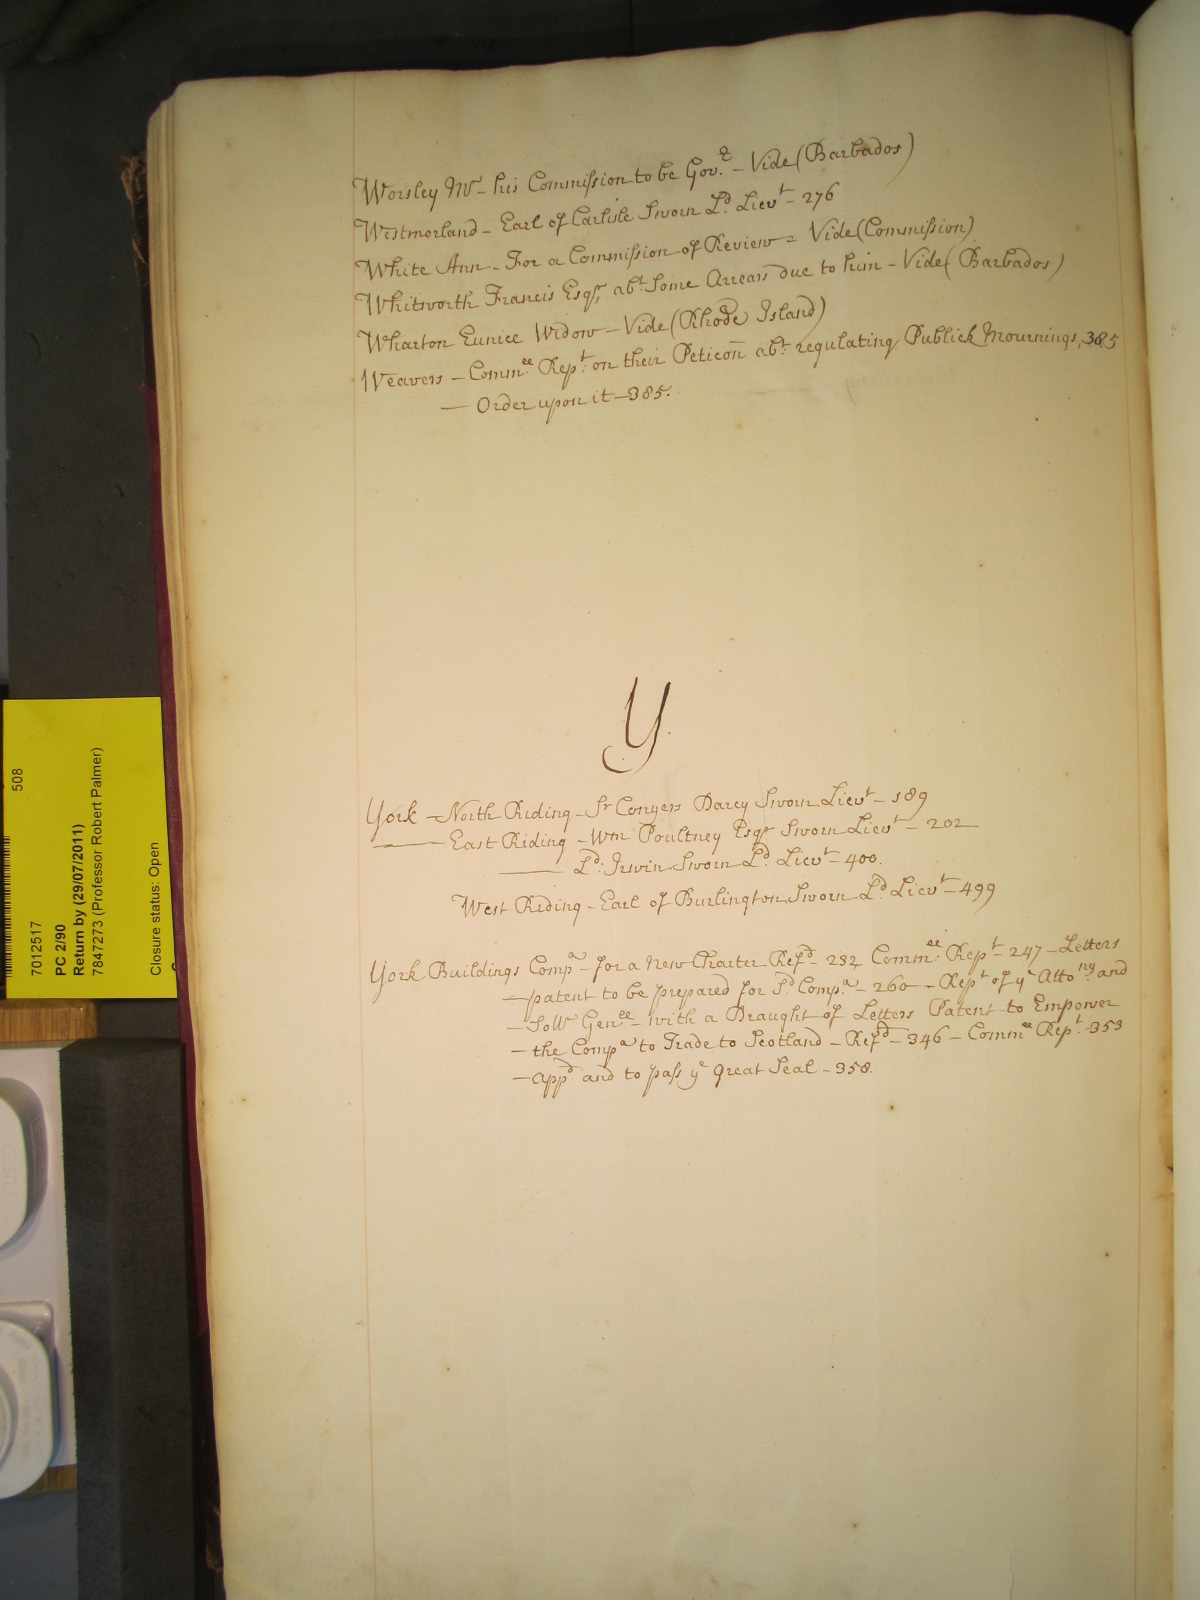 Worsley Mr – his Commission to be Gov.r – Vide (Barbados)
Westmorland – Earl of Carlisle Sworn Ld Lievt – 276
White Ann – For a Commission of Review = Vide (Commission)
Whitworth Francis Esqr, abt Some Arrears due to him – Vide (Barbados)
Wharton Eunice Widow – Vide (Rhode Island)
Weavers – Commee Rept on their Peticon̄ abt regulating Publick Mournings, 385
— Order upon it – 385.
Y
York – North Riding – Sr Conyers Darcy Sworn Lievt – 189
—— East Riding – Wm Poultney Esqr Sworn Lievt – 202
—— Ld: Irwin Sworn Ld Lievt – 400.
West Riding – Earl of Burlington Sworn Ld Lievt – 499
York Buildings Compa – for a New Charter Refd – 232 Commee Rept – 247 – Letters
– patent to be prepared for Sd Compa – 260 – Rept of ye Attorny and
– Sollr Genll – with a Draught of Letters Patent to Empower
– the Compa to Trade to Scotland – Refd – 346 – Commee Rept – 353
– appd and to pass ye great Seal – 358.
508
7012517
PC 2/90
Return by (29/07/2011)
7847273 (Professor Robert Palmer)
Closure status: Open